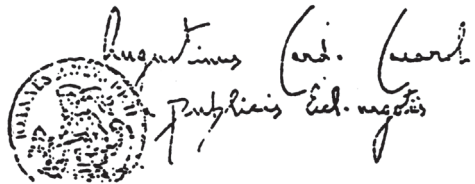 Augustinus Card. Casarol
a publicis Eccl. negotiis